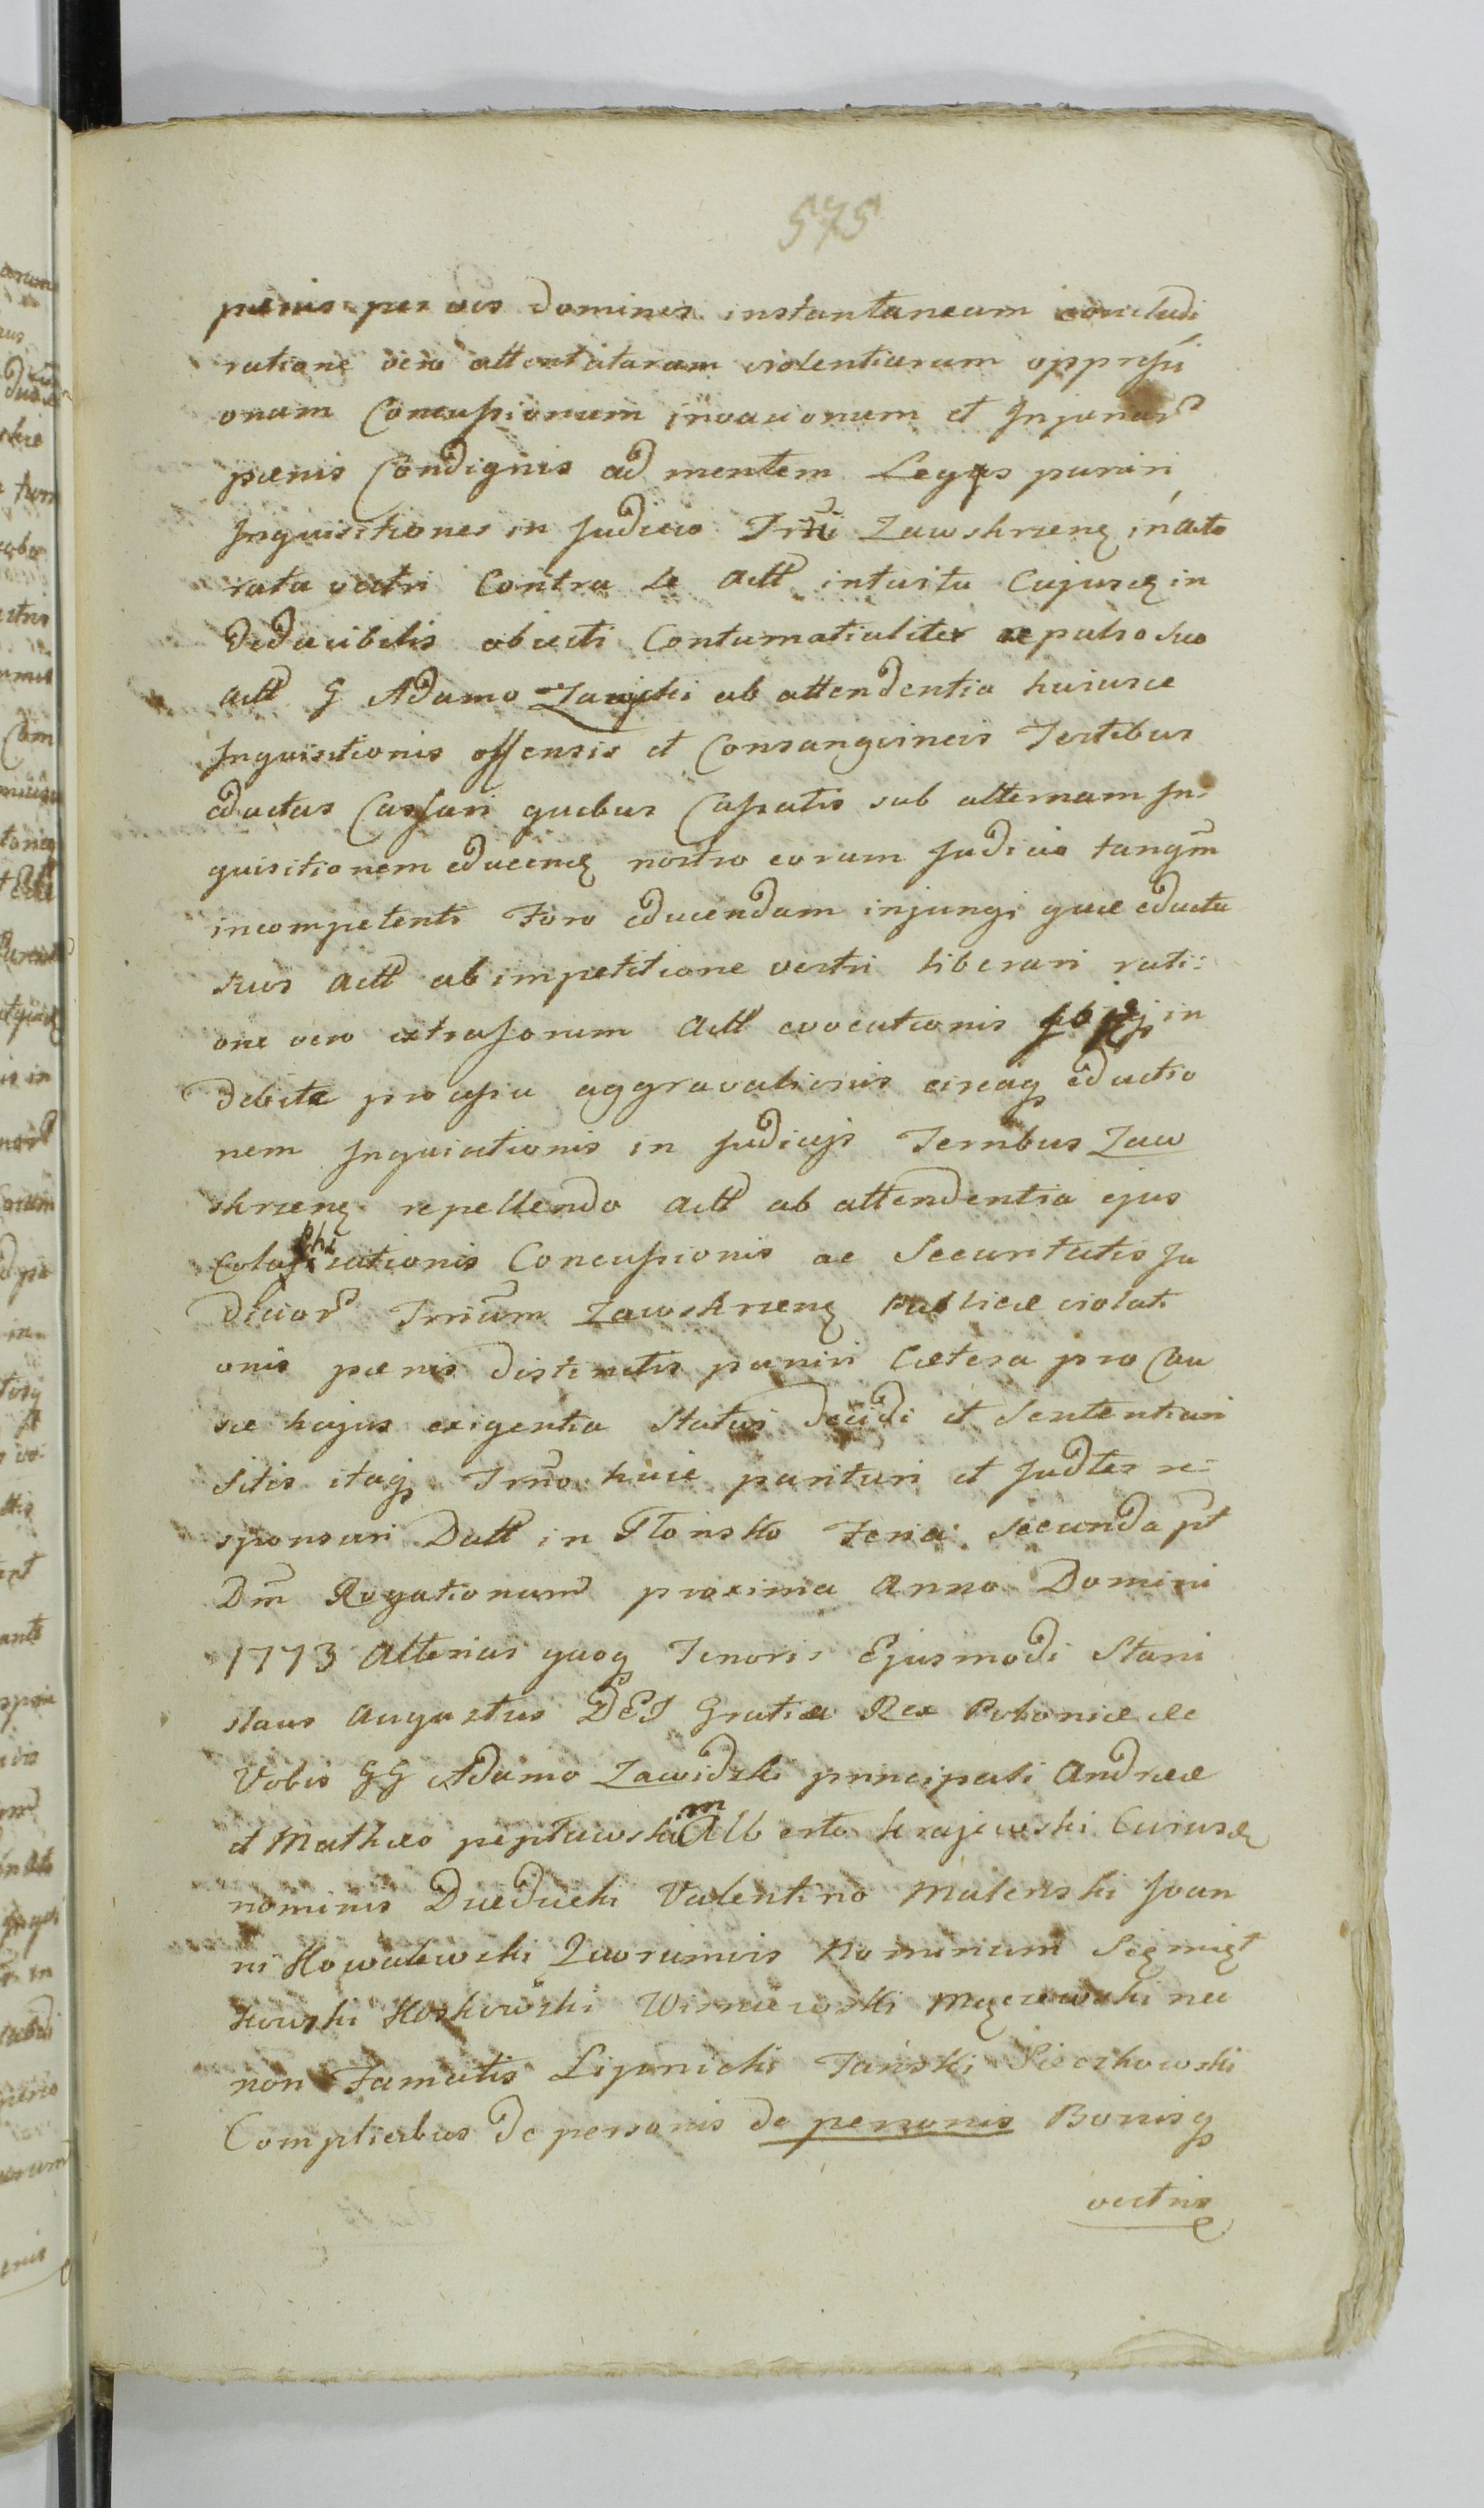 575
pœnis per vos Domines instantaneam concludi
ratione vero attentataram violentiarum oppressi
onum Concussionum invasionum et Injuriar
pœnis Condignis ad mentem Leges puniri
Inquisitiones in Judicio Trrũi Zawskrzenẹ in acto
ratu vestri Contra se Actt intuitu Cujuscẹ in
Deducibilis objecti Contumatialiter repulso suo
actt G Adamo ab attendentia huiusce
Inquisitionis offensis et Consanguineis Testibus
eductas Cassari quibus Cassatis sub alternam In-
quisitionem educenẹ nostro eorum Judicio tanqm̃
incompetenti Foro educendam injungi quæ educta
suos actt ab impetitione vestri liberari rati-
one vero extraforum Actt evocationis in
debite processu aggravationis eireaq eductio
nem Inquisitionis in Judicijs Ternbus Zaw
skrzenẹ repellendo actt ab attendentia ejus
Colaphisationis Concussionis ac Securitatis Ju
dicior Trrium Zawskrzenẹ publicæ violati
onis pœnis distinctis puniri Cætera pro Cau
sæ hujus exigentia Statui Decidi et Sententiari
Sitis itaq Trm̃o huic parituri et Judter re-
sponsuri Datt in Płońsko Feria Secunda pt
Dm̃ Rogationum proxima Anno Domini
1773 Alterius quoq Tenoris Ejusmodi Stani
slaus Augustus DEI Gratia Rex Poloniæ &c
Vobis GG Adamo Zawidzki principali Andreæ
et Mathæo pepłowskim Alberto Krajewski Cuiuscẹ
nominis Duducki Valentino Maleński Joan
ni Kowalewski Quorumvis Nominum Sẹmięt
kowski Koskowski Wisniewski Mẹczewski nec
non Famatis Lipnicki Tański Sieczkowski
Complicibus de personis de personis Bonisq
vestris